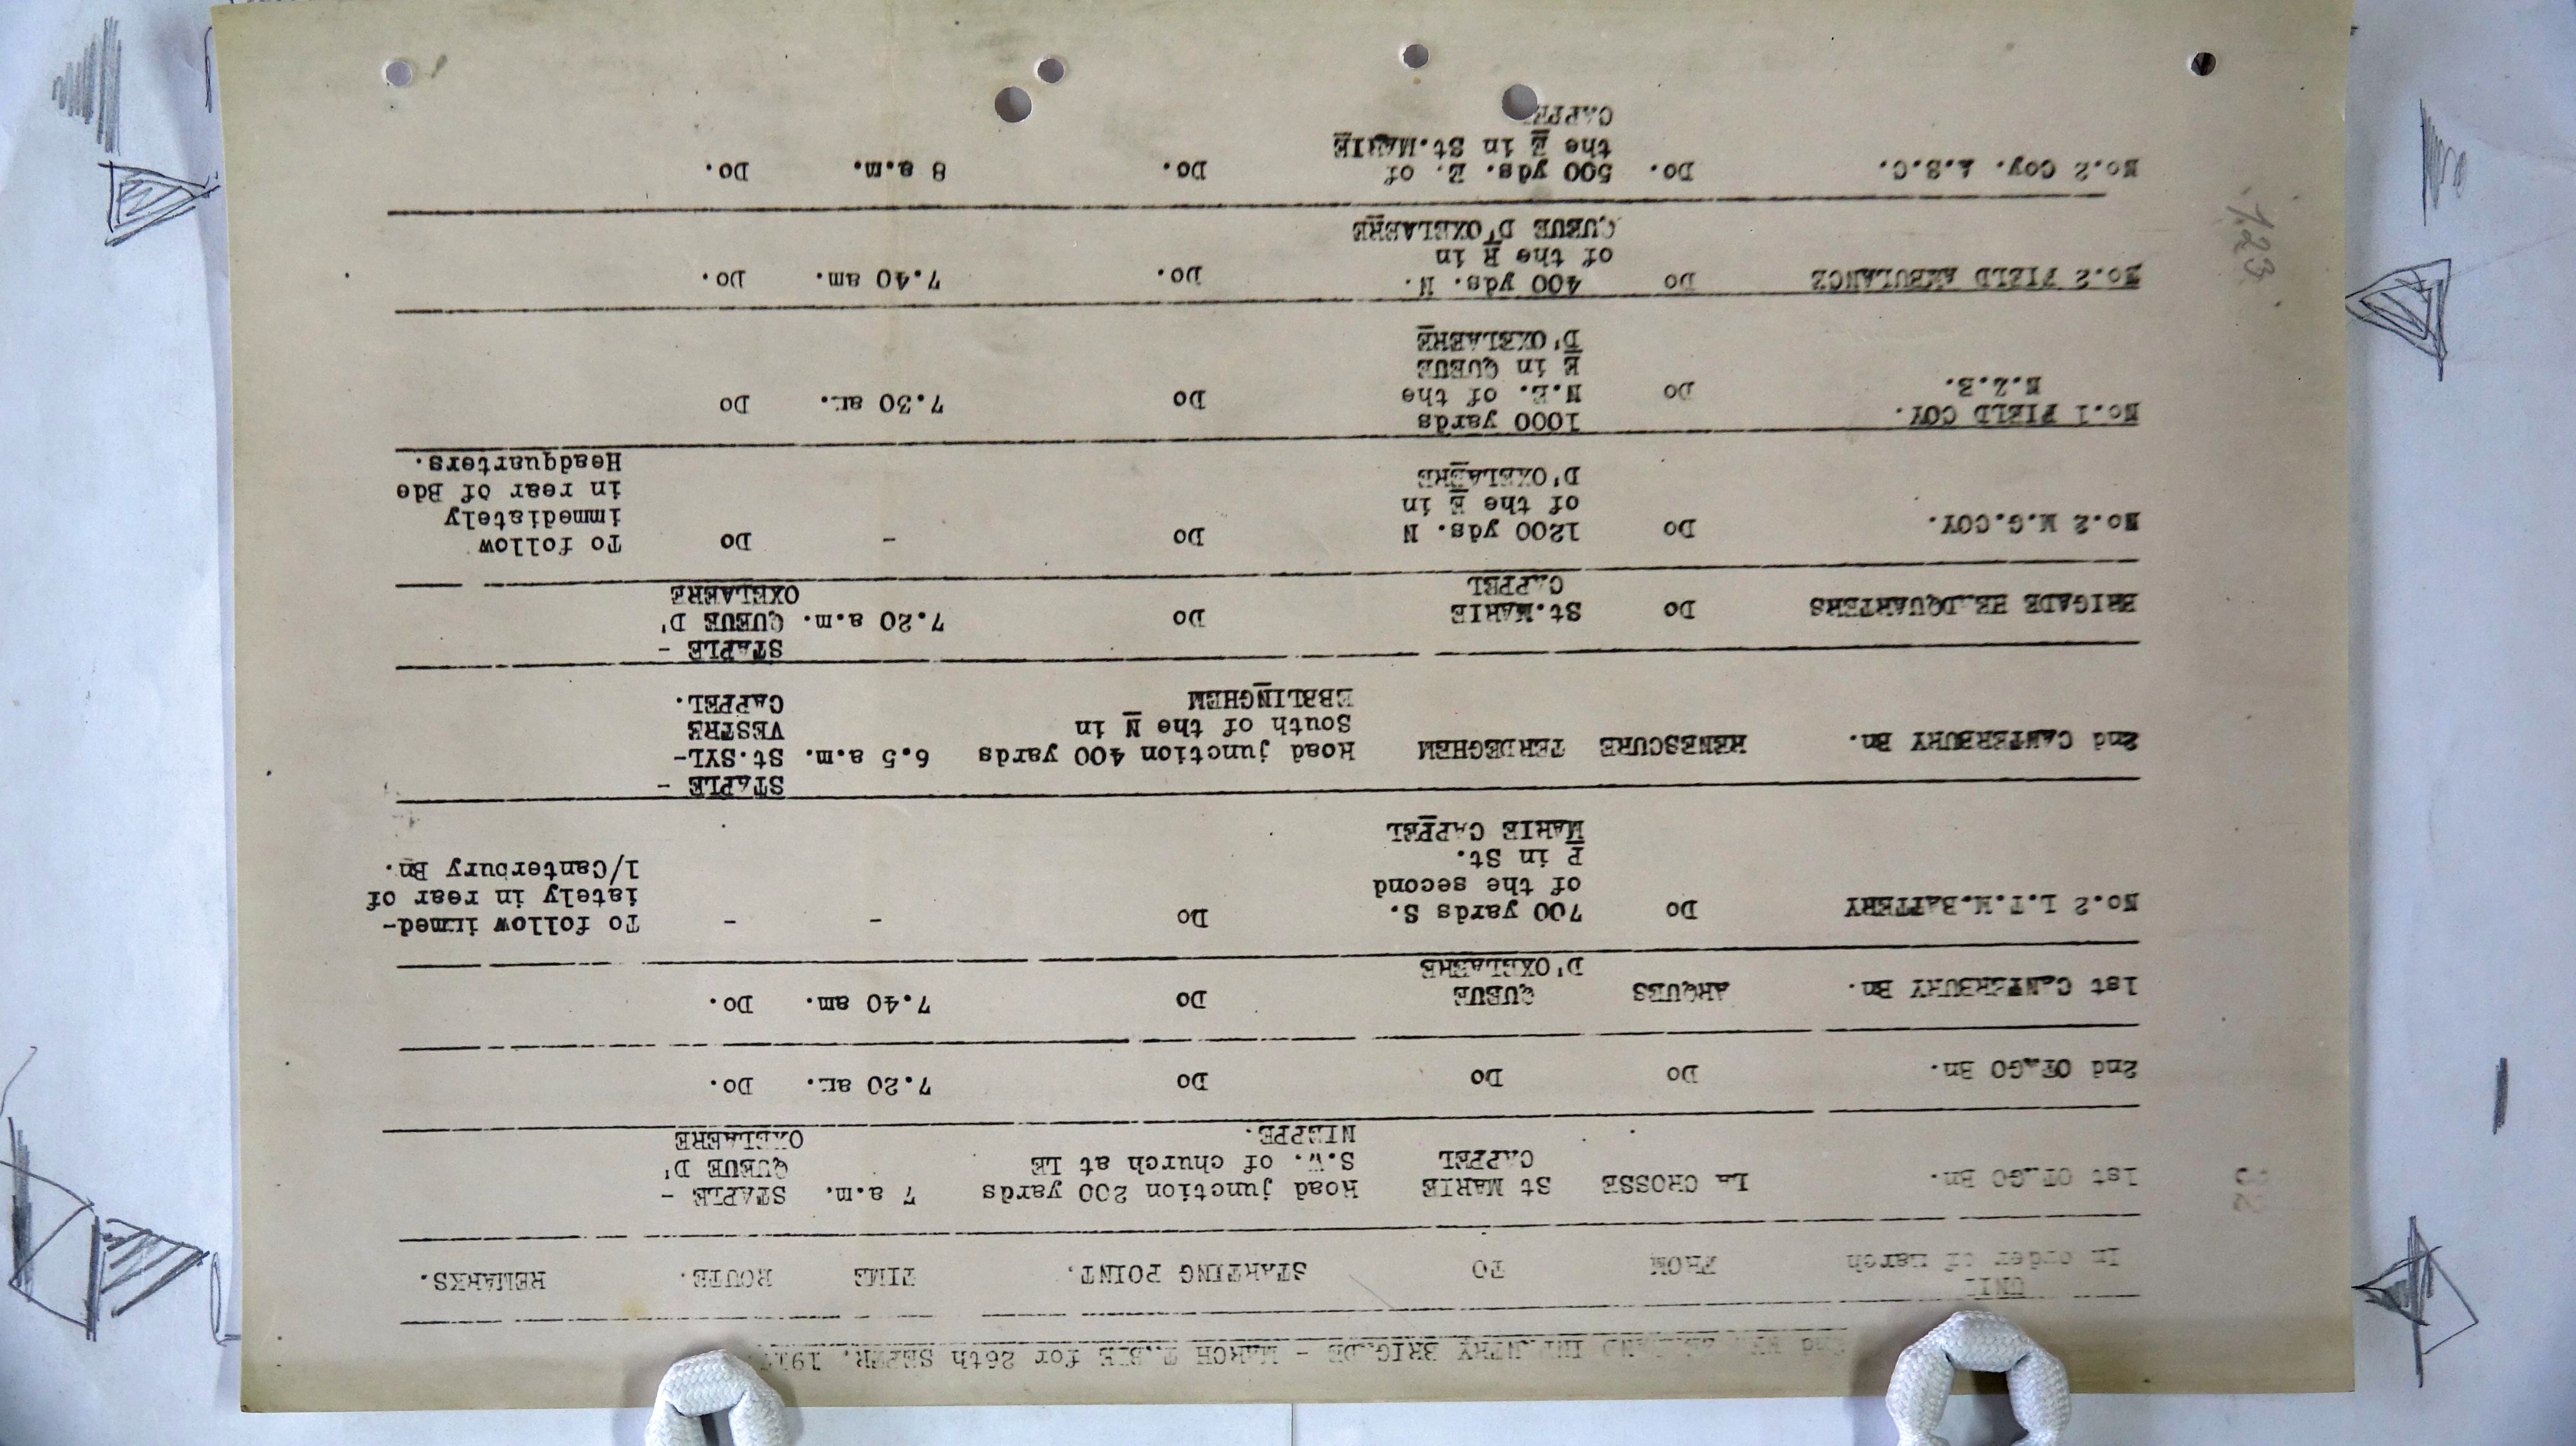 2nd NEW ZEALAND INFANTRY BRIGADE - MARCH TABLE for 26th SEPTR. 1917
UNIT
In order of march FROM TO STARTING POINT. TIME ROUTE. REMARKS.
1st OTAGO Bn. La CROSSE St MARIE Road junction 200 yards 7 a.m. STAPLE -
CAPPEL S.W. of church at LE QUEUE D'
NIEPPE. OXELAERE
2nd OTAGO Bn. Do Do Do 7.20 am. Do.
1st CANTERBURY Bn. ARQUES QUEUE Do 7.40 am. Do.
D'OXELAERE
No.2 L.T.M.BATTERY Do 700 yards S. Do - - To follow immed-
of the second iately in rear of
P in St. 1/Canterbury Bn.
MARIE CAPPEL
STAPLE -
2nd CANTERBURY Bn. RENESCURE TERDEGHEM Road junction 400 yards 6.5 a.m. St.SYL-
South of the N in VESTRE
EBBLINGHEM CAPPEL.
STAPLE -
BRIGADE HEADQUARTERS Do St.MARIE Do 7.20 a.m. QUEUE D'
CAPPEL OXELAERE
No.2 M.G.COY. Do 1200 yds. N Do - Do To follow
of the E in immediately
D'OXELAERE in rear of Bde
Headquarters.
No.1 FIELD COY. 1000 yards
N.Z.E. Do N.E. of the Do 7.30 am. Do
E in QUEUE
D'OXELAERE
No.2 FIELD AMBULANCE Do 400 yds. N. Do. 7.40 am. Do.
of the R in
QUEUE D'OXELAERE
No.2 Coy. A.S.C. Do. 500 yds. E. of Do. 8 a.m. Do.
the E in St.MARIE
CAPPEL
123